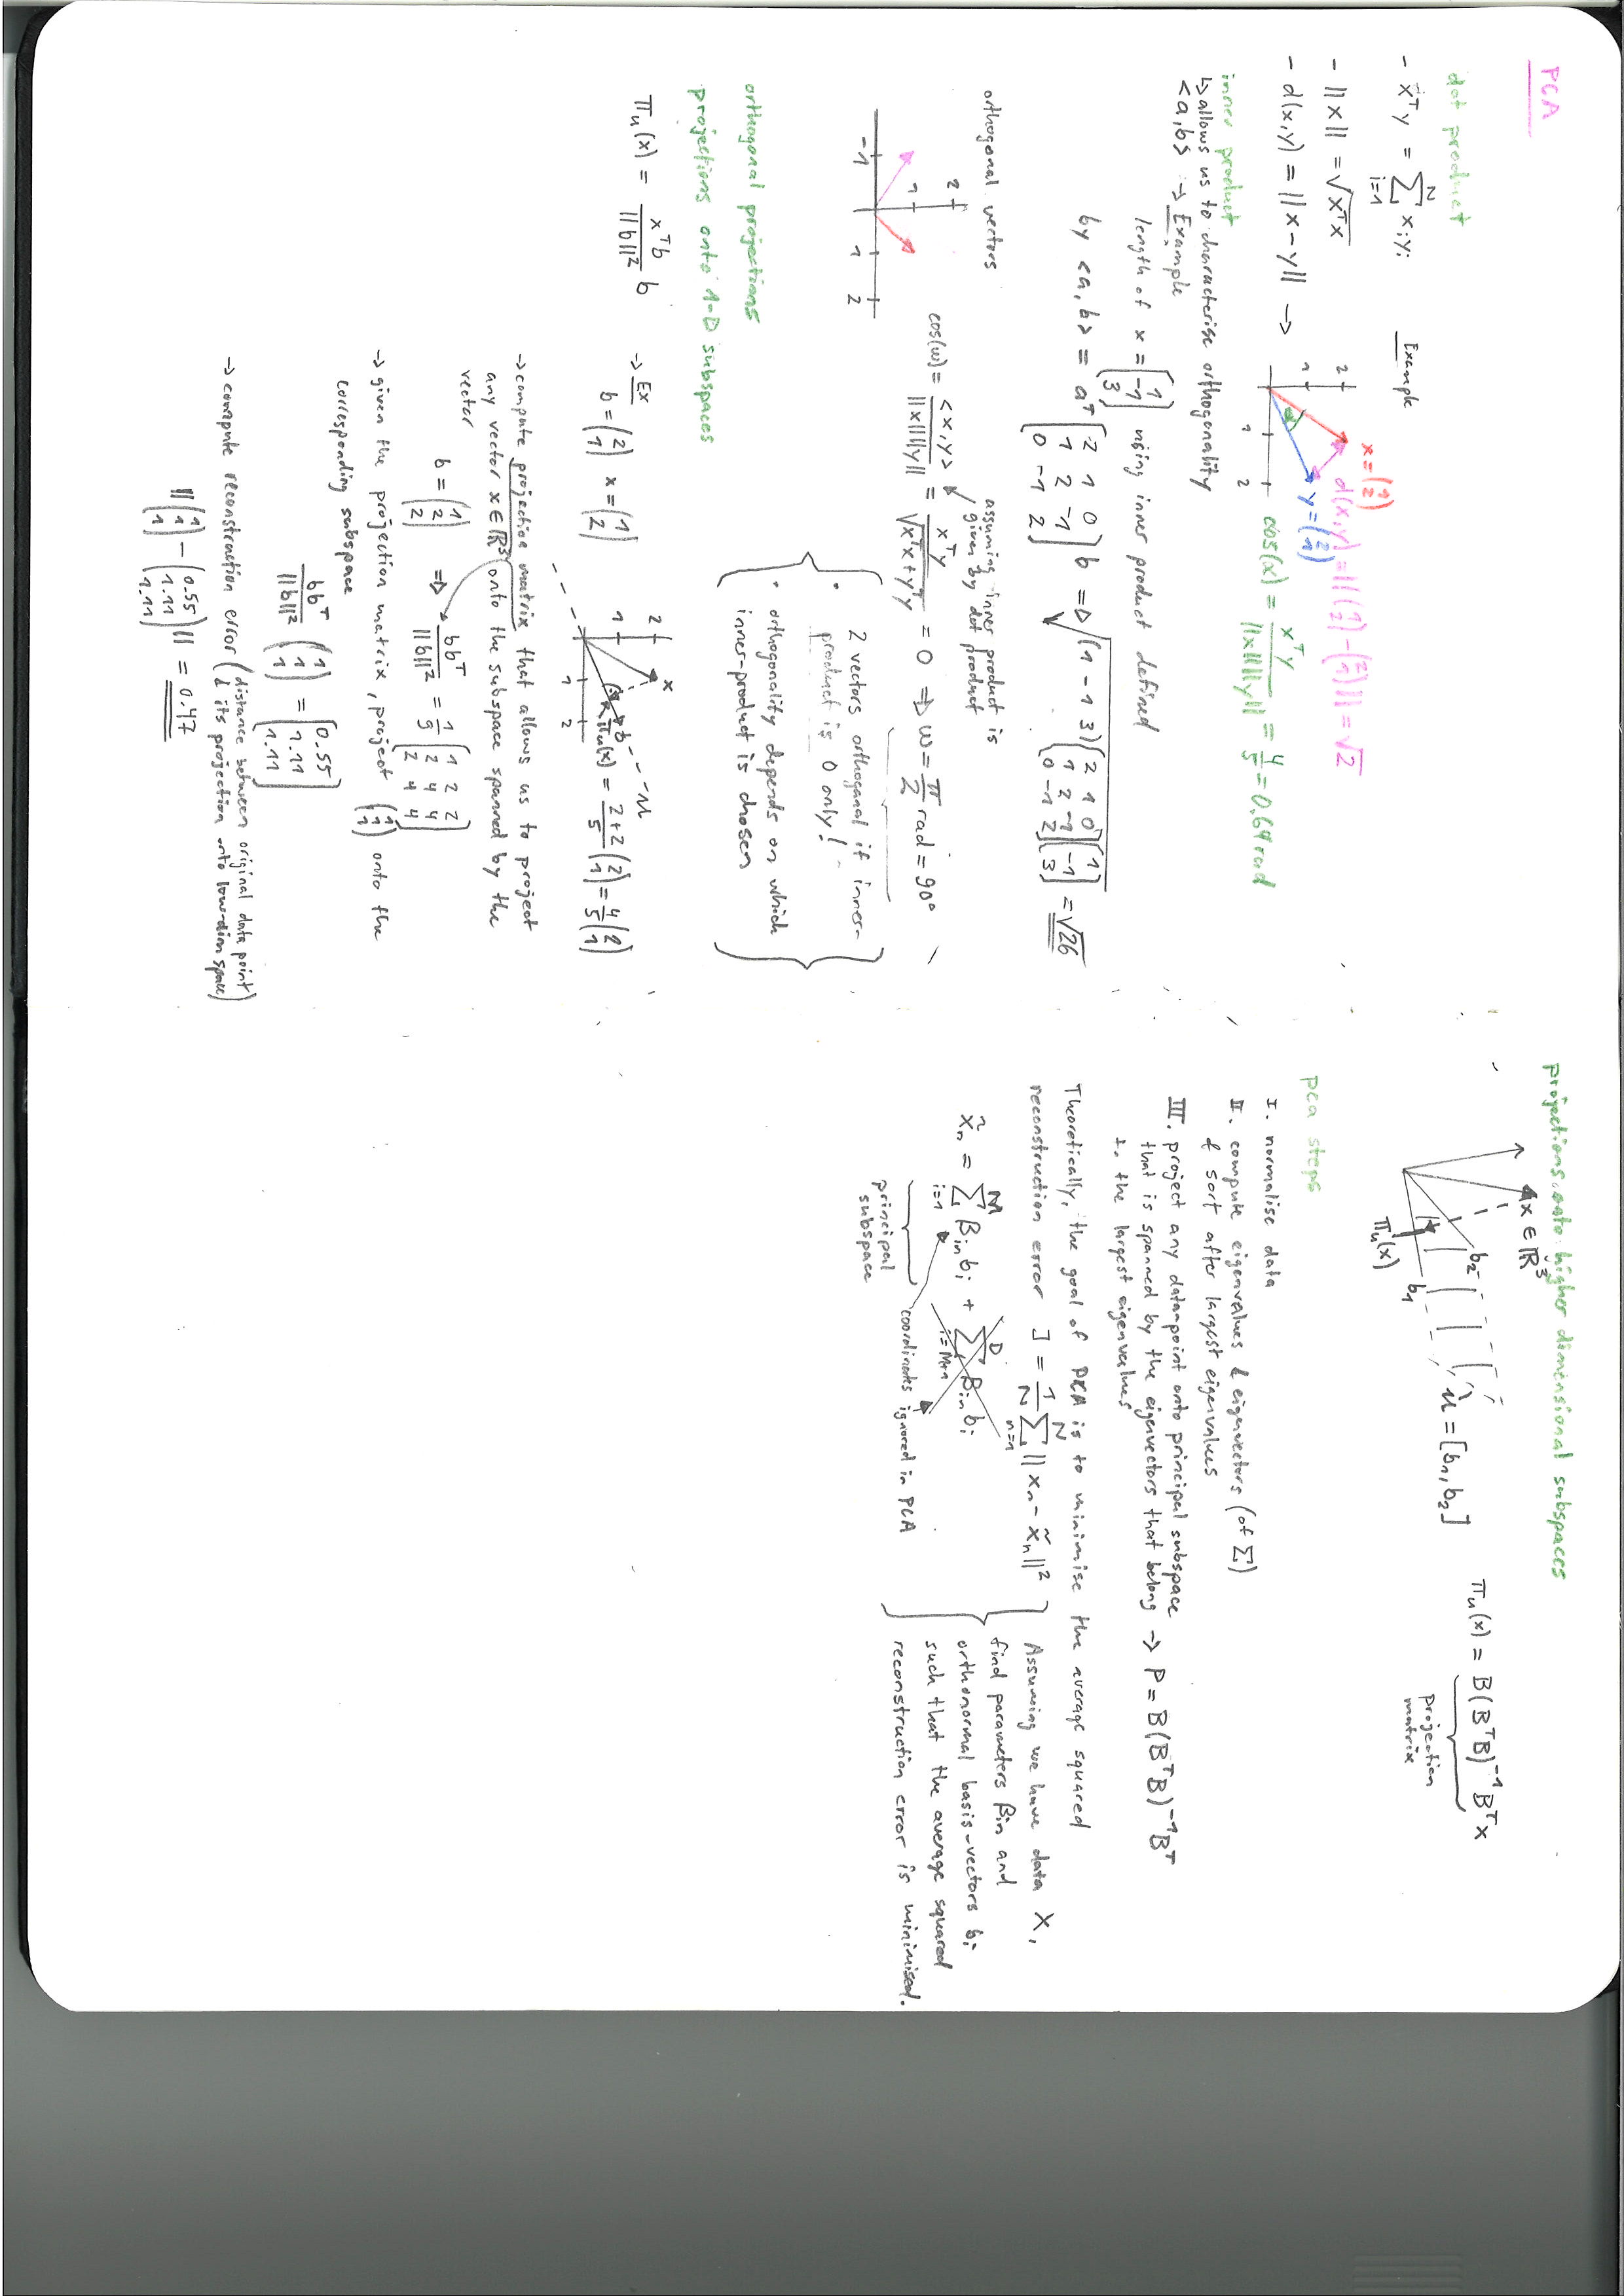 PCA
dot product
- x^T y = Σ_{i=1}^{N} x_i y_i
Example
- ||x|| = √(x^T x)
- d(x,y) = ||x-y|| →
x = (1 2)
d(x,y) = ||(1 2) - (2 1)|| = √2
y = (2 1)
2
1
1 2
α
cos(x) = x^T y / ||x|| ||y|| = 4/5 = 0.64 rad
inner product
↳ allows us to characterise orthogonality
<a,b> → Example
length of x = [1 -1 3] using inner product defined
by <a,b> = a^T [2 1 0
1 2 -1
0 -1 2] b ⇒ √((1 -1 3) [2 1 0
1 2 -1
0 -1 2] [1 -1 3]) = √26
orthogonal vectors
assuming inner product is
given by dot product
2
1
-1 1 2
cos(ω) = <x,y> / ||x|| ||y|| = x^T y / √(x^T x + y^T y) = 0 ⇒ ω = π/2 rad = 90°
· 2 vectors orthogonal if inner-
product is 0 only!
· orthogonality depends on which
inner-product is chosen
orthogonal projections
projections onto 1-D subspaces
π_u(x) = x^T b / ||b||² b
→ Ex
b = (2 1) x = (1 2)
x
2
1
1 2
b
u
π_u(x) = 2+2/5 (2 1) = 4/5 (2 1)
→ compute projection matrix that allows us to project
any vector x ∈ ℝ³ onto the subspace spanned by the
vector
b = (1 2 2) ⇒ bb^T / ||b||² = 1/9 [1 2 2
2 4 4
2 4 4]
→ given the projection matrix, project (1 1 1) onto the
corresponding subspace
bb^T / ||b||² (1 1 1) = [0.55 1.11 1.11]
→ compute reconstruction error (distance between original data point
& its projection onto low-dim space)
||(1 1 1) - (0.55 1.11 1.11)|| = 0.47
projections onto higher dimensional subspaces
x ∈ ℝ³
b_2
b_1
u = [b_1, b_2]
π_u(x)
π_u(x) = B(B^T B)^{-1} B^T x
projection
matrix
pca steps
I. normalise data
II. compute eigenvalues & eigenvectors (of Σ)
& sort after largest eigenvalues
III. project any data-point onto principal subspace
that is spanned by the eigenvectors that belong → P = B(B^T B)^{-1} B^T
to the largest eigenvalues
Theoretically, the goal of PCA is to minimise the average squared
reconstruction error J = 1/N Σ_{n=1}^{N} ||x_n - x̃_n||²
x̃_n = Σ_{i=1}^{M} β_in b_i + Σ_{i=M+1}^{D} β_in b_i
coordinates
ignored in PCA
principal
subspace
Assuming we have data X,
find parameters β_in and
orthonormal basis-vectors b_i
such that the average squared
reconstruction error is minimised.